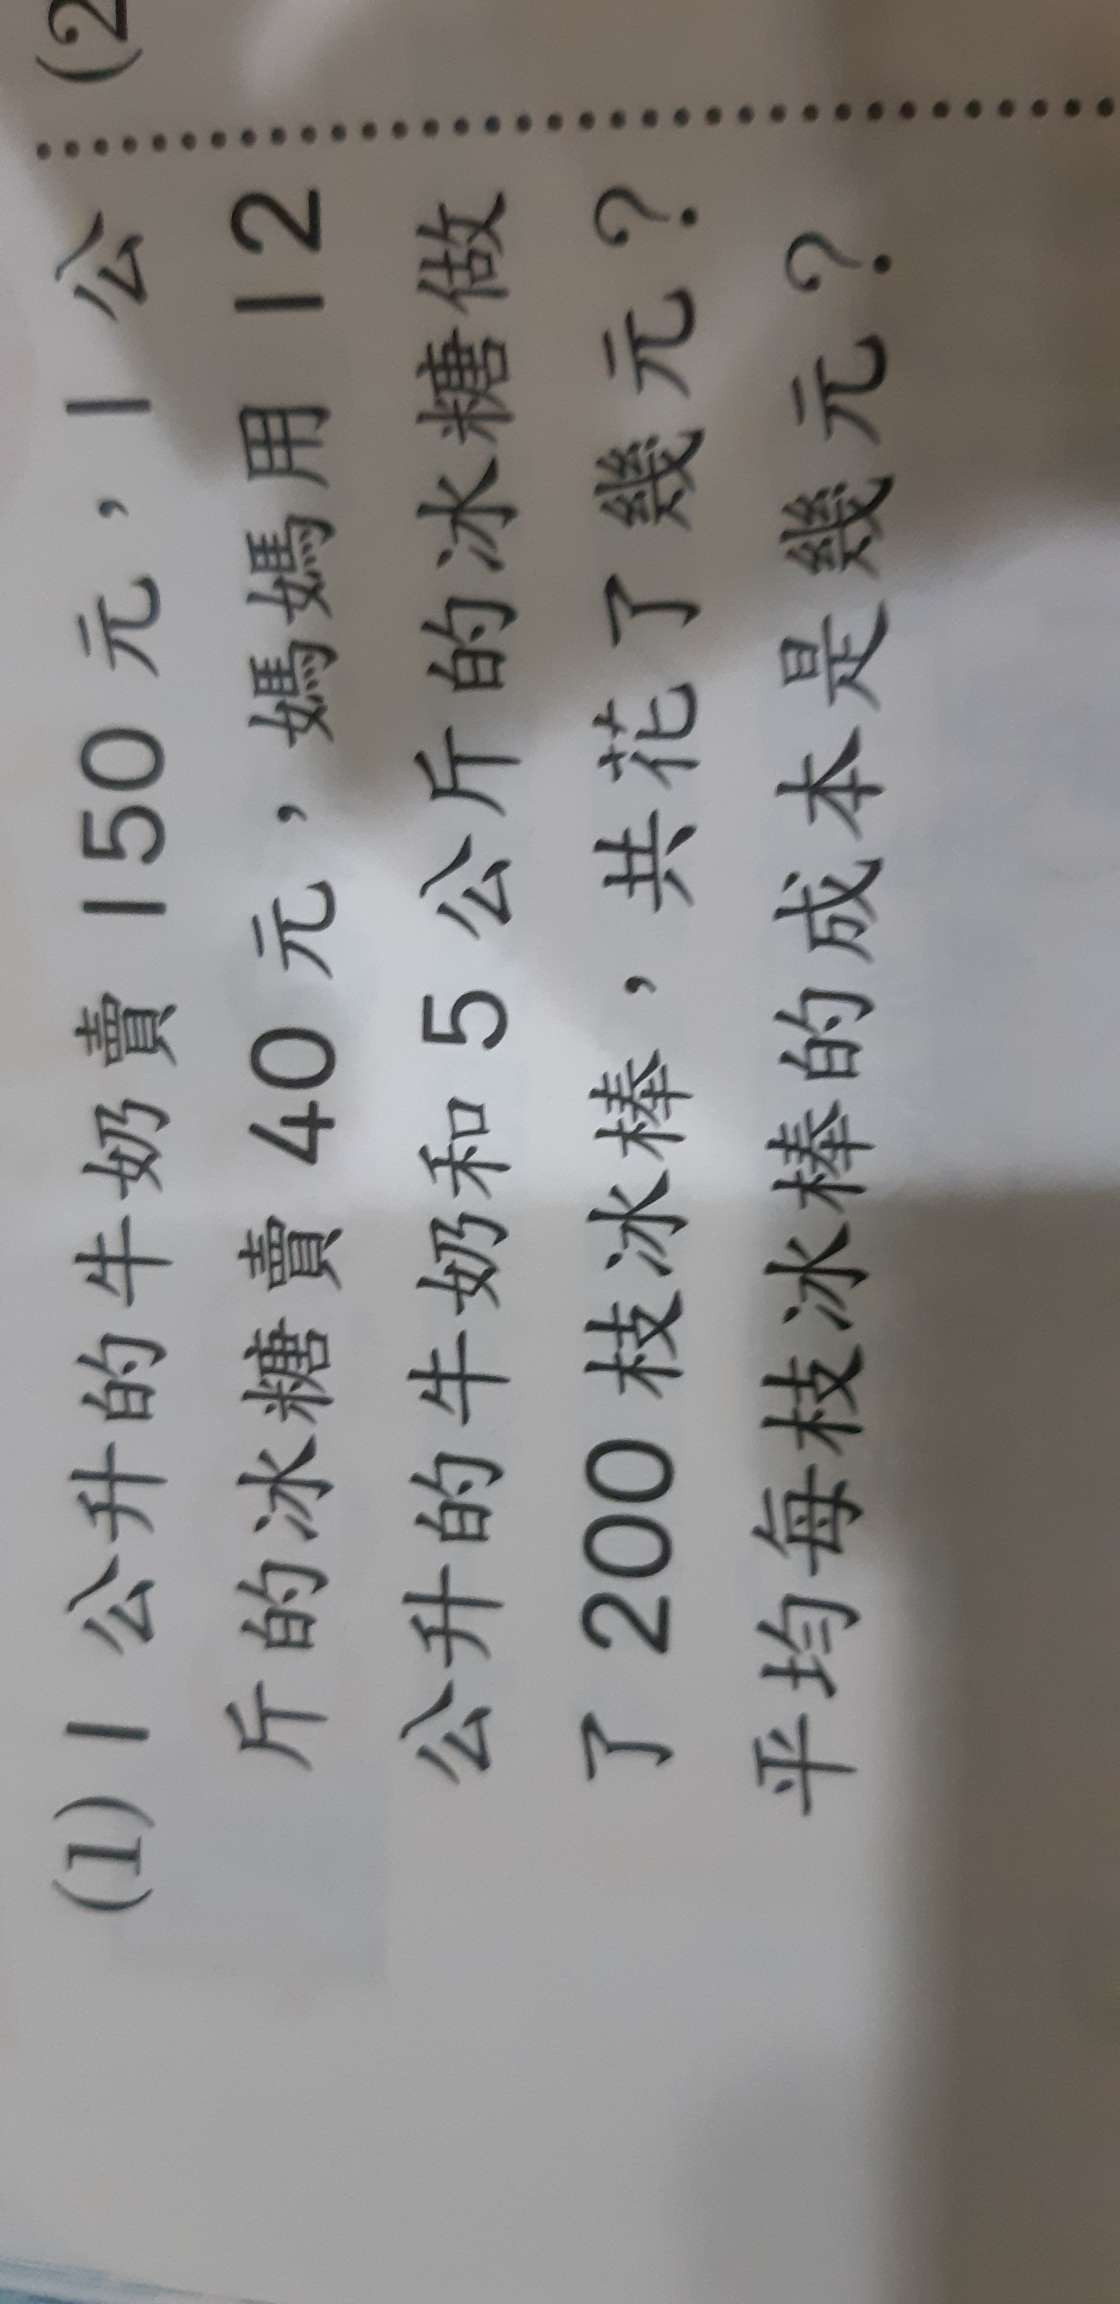 (1) 1 公升的牛奶賣 150 元，1 公
斤的冰糖賣 40 元，媽媽用 12
公升的牛奶和 5 公斤的冰糖做
了 200 枝冰棒，共花了幾元？
平均每枝冰棒的成本是幾元？
(2